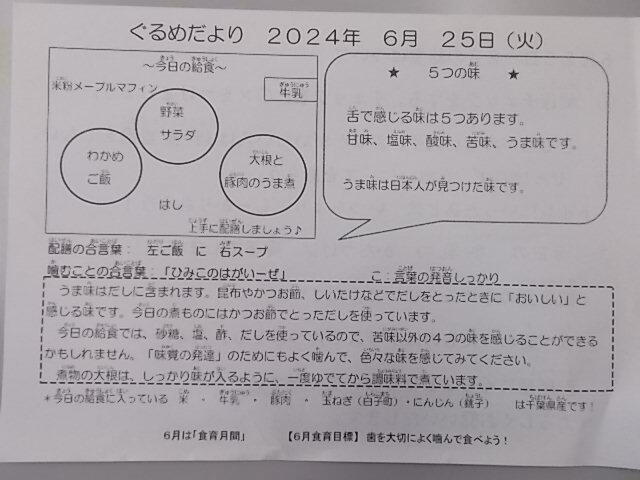 ぐるめだより　2024年　6月　25日（火）
～今日の給食～
米粉メープルマフィン
牛乳
野菜
サラダ
わかめ
ご飯
大根と
豚肉のうま煮
はし
上手に配膳しましょう♪
★　5つの味　★
舌で感じる味は5つあります。
甘味、塩味、酸味、苦味、うま味です。
うま味は日本人が見つけた味です。
配膳の合言葉：　左ご飯　に　右スープ
噛むことの合言葉：「ひみこのはがいーぜ」　こ：言葉の発音しっかり
うま味はだしに含まれます。昆布やかつお節、しいたけなどでだしをとったときに「おいしい」と
感じる味です。今日の煮ものにはかつお節でとっただしを使っています。
今日の給食では、砂糖、塩、酢、だしを使っているので、苦味以外の4つの味を感じることができる
かもしれません。「味覚の発達」のためにもよく噛んで、色々な味を感じてみてください。
煮物の大根は、しっかり味が入るように、一度ゆでてから調味料で煮ています。
＊今日の給食に入っている　米　・　牛乳　・　豚肉　・　玉ねぎ（白子町）・にんじん（銚子）　は千葉県産です！
6月は「食育月間」　【6月食育目標】歯を大切によく噛んで食べよう！